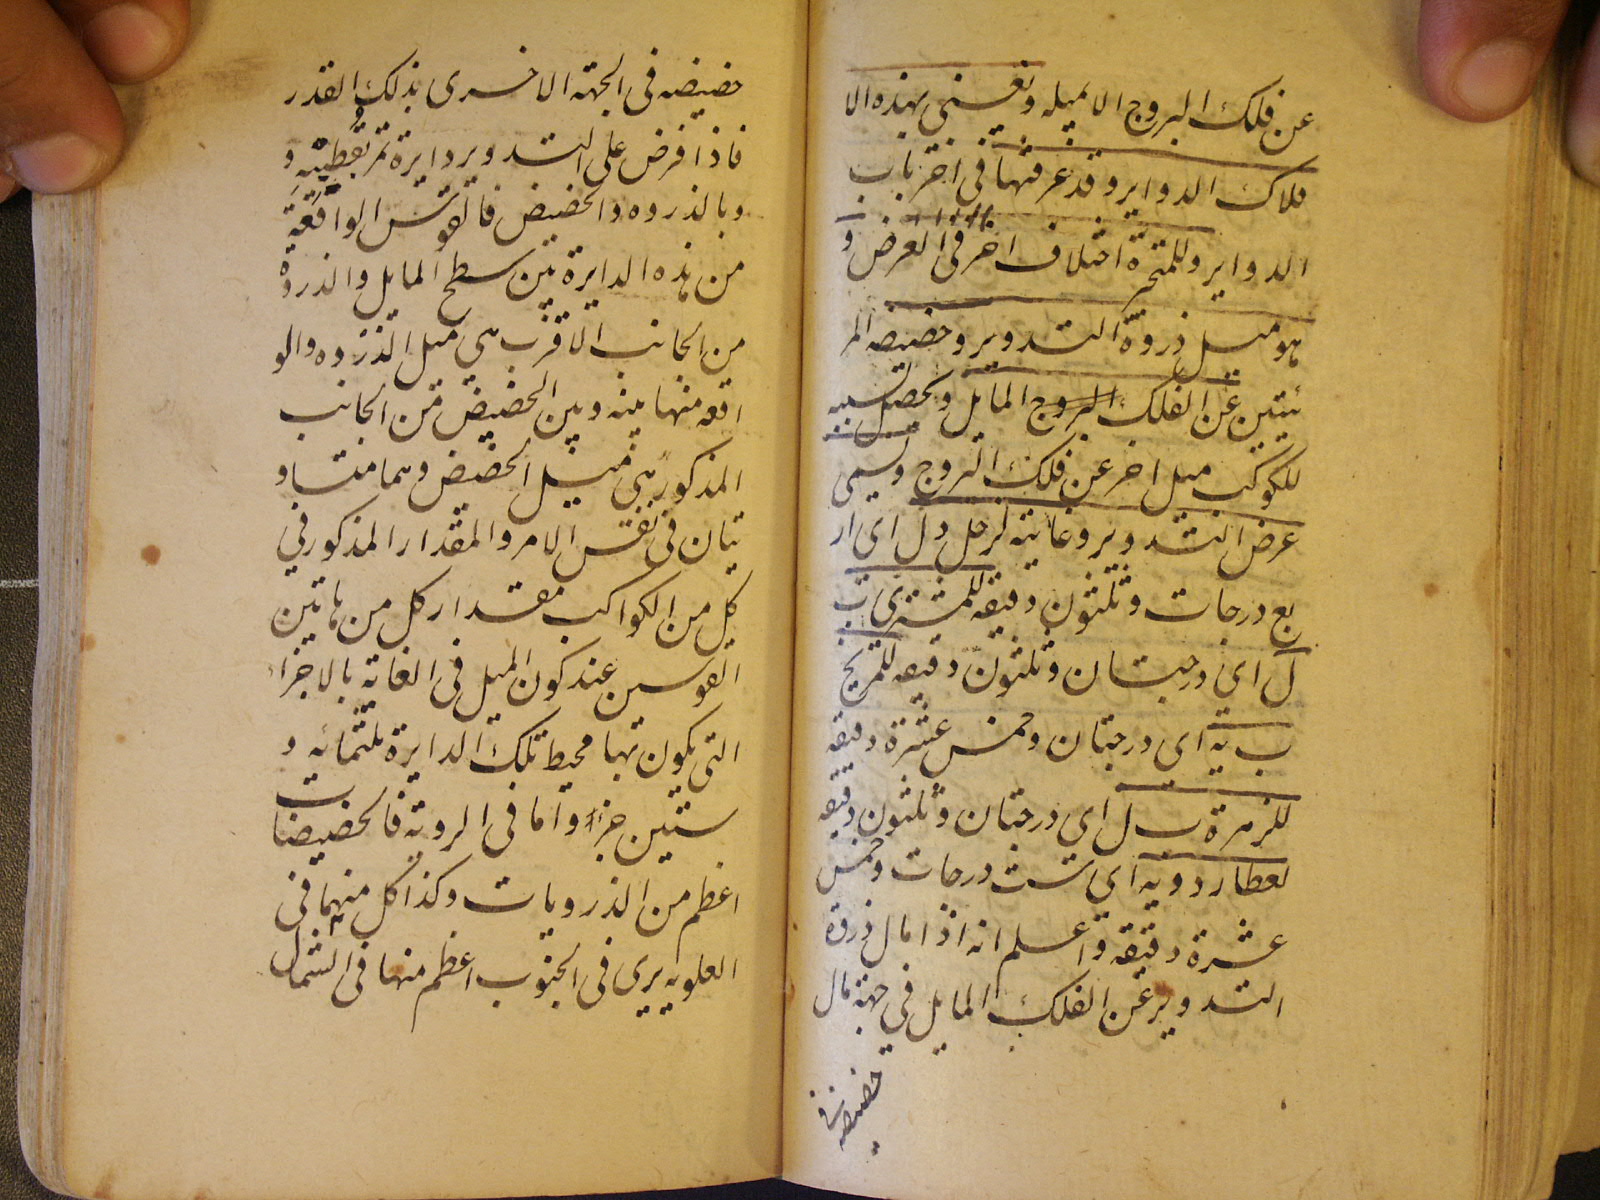 عن فلك البروج الا ميله ونعنى بهذه الا
فلاك الدواير وقد عرفتها فى اخر باب
الدواير وللمتحيرة اختلاف اخر فى العرض و
هو ميل ذروة التدوير وحضيضه المر
ئيتين عن الفلك البروج المايل ويحصل بسببه
للكوكب ميل اخر عن فلك البروج ويسمى
عرض التدوير وغايته لزحل د ل اى ار
بع درجات وثلثون دقيقه للمشترى ب
ل اى درجتان وثلثون دقيقه للمريخ
ب يه اى درجتان وخمس عشرة دقيقه
للزهرة ب ل اى درجتان وثلثون دقيقه
لعطارد و يه اى ست درجات وخمس
عشرة دقيقه واعلم انه اذا مال ذروة
التدوير عن الفلك المايل فى جهة مال
حضيضه فى
حضيضه فى الجهة الاخرى بذلك القدر
فاذا فرض على التدوير دايرة تمر بقطبيه و
وبالذروه والحضيض فالقوس الواقعة
من هذه الدايرة بين سطح المايل والذروة
من الجانب الاقرب هى ميل الذروه والو
اقعه منها بينه وبين الحضيض من الجانب
المذكور هى ميل الحضيض وهما متساو
يتان فى نفس الامر والمقدار المذكور في
كل من الكواكب مقدار كل من هاتين
القوسين عند كون الميل فى الغاية بالاجزاء
التى يكون بها محيط تلك الدايرة ثلثمائه و
ستين جزءا واما فى الروية فالحضيضيات
اعظم من الذرويات وكذا كل منهما فى
العلويه يرى فى الجنوب اعظم منها فى الشمال